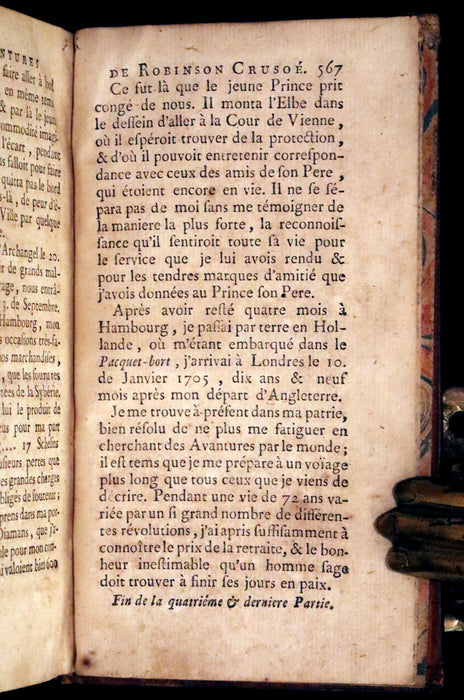 NTURES
faire aller à bord
en même tems
& par là le jeun
ommodité imagi-
l'écart, pendant
us falloit pour faire
quitta pas le bord
s-là, de peur d'ê-
Ville par quelque
e.
'Archangel le 20.
r de grands mal-
age, nous entrâ-
3. de Septembre.
Hambourg, mon
s occasions très-fa-
os marchandises,
, que les fourures
tées de la Sybérie.
lui le produit de
us pour ma part
.... 17 Schelins
usieurs pertes que
es grandes charges
bligés de soutenir;
prens dans ma por-
Diamans, que j'a-
le pour mon con-
i valoient bien 600
DE ROBINSON CRUSOÉ. 567
Ce fut là que le jeune Prince prit
congé de nous. Il monta l'Elbe dans
le dessein d'aller à la Cour de Vienne,
où il espéroit trouver de la protection,
& d'où il pouvoit entretenir correspon-
dance avec ceux des amis de son Pere,
qui étoient encore en vie. Il ne se sé-
para pas de moi sans me témoigner de
la maniere la plus forte, la reconnois-
sance qu'il sentiroit toute sa vie pour
le service que je lui avois rendu &
pour les tendres marques d'amitié que
j'avois données au Prince son Pere.
Après avoir resté quatre mois à
Hambourg, je passai par terre en Hol-
lande, où m'étant embarqué dans le
Pacquet-bort, j'arrivai à Londres le 10.
de Janvier 1705, dix ans & neuf
mois après mon départ d'Angleterre.
Je me trouve à présent dans ma patrie,
bien résolu de ne plus me fatiguer en
cherchant des Avantures par le monde;
il est tems que je me prépare à un voiage
plus long que tous ceux que je viens de
décrire. Pendant une vie de 72 ans va-
riée par un si grand nombre de différen-
tes révolutions, j'ai apris suffisamment à
connoître le prix de la retraite, & le bon-
heur inestimable qu'un homme sage
doit trouver à finir ses jours en paix.
Fin de la quatriéme & derniere Partie.